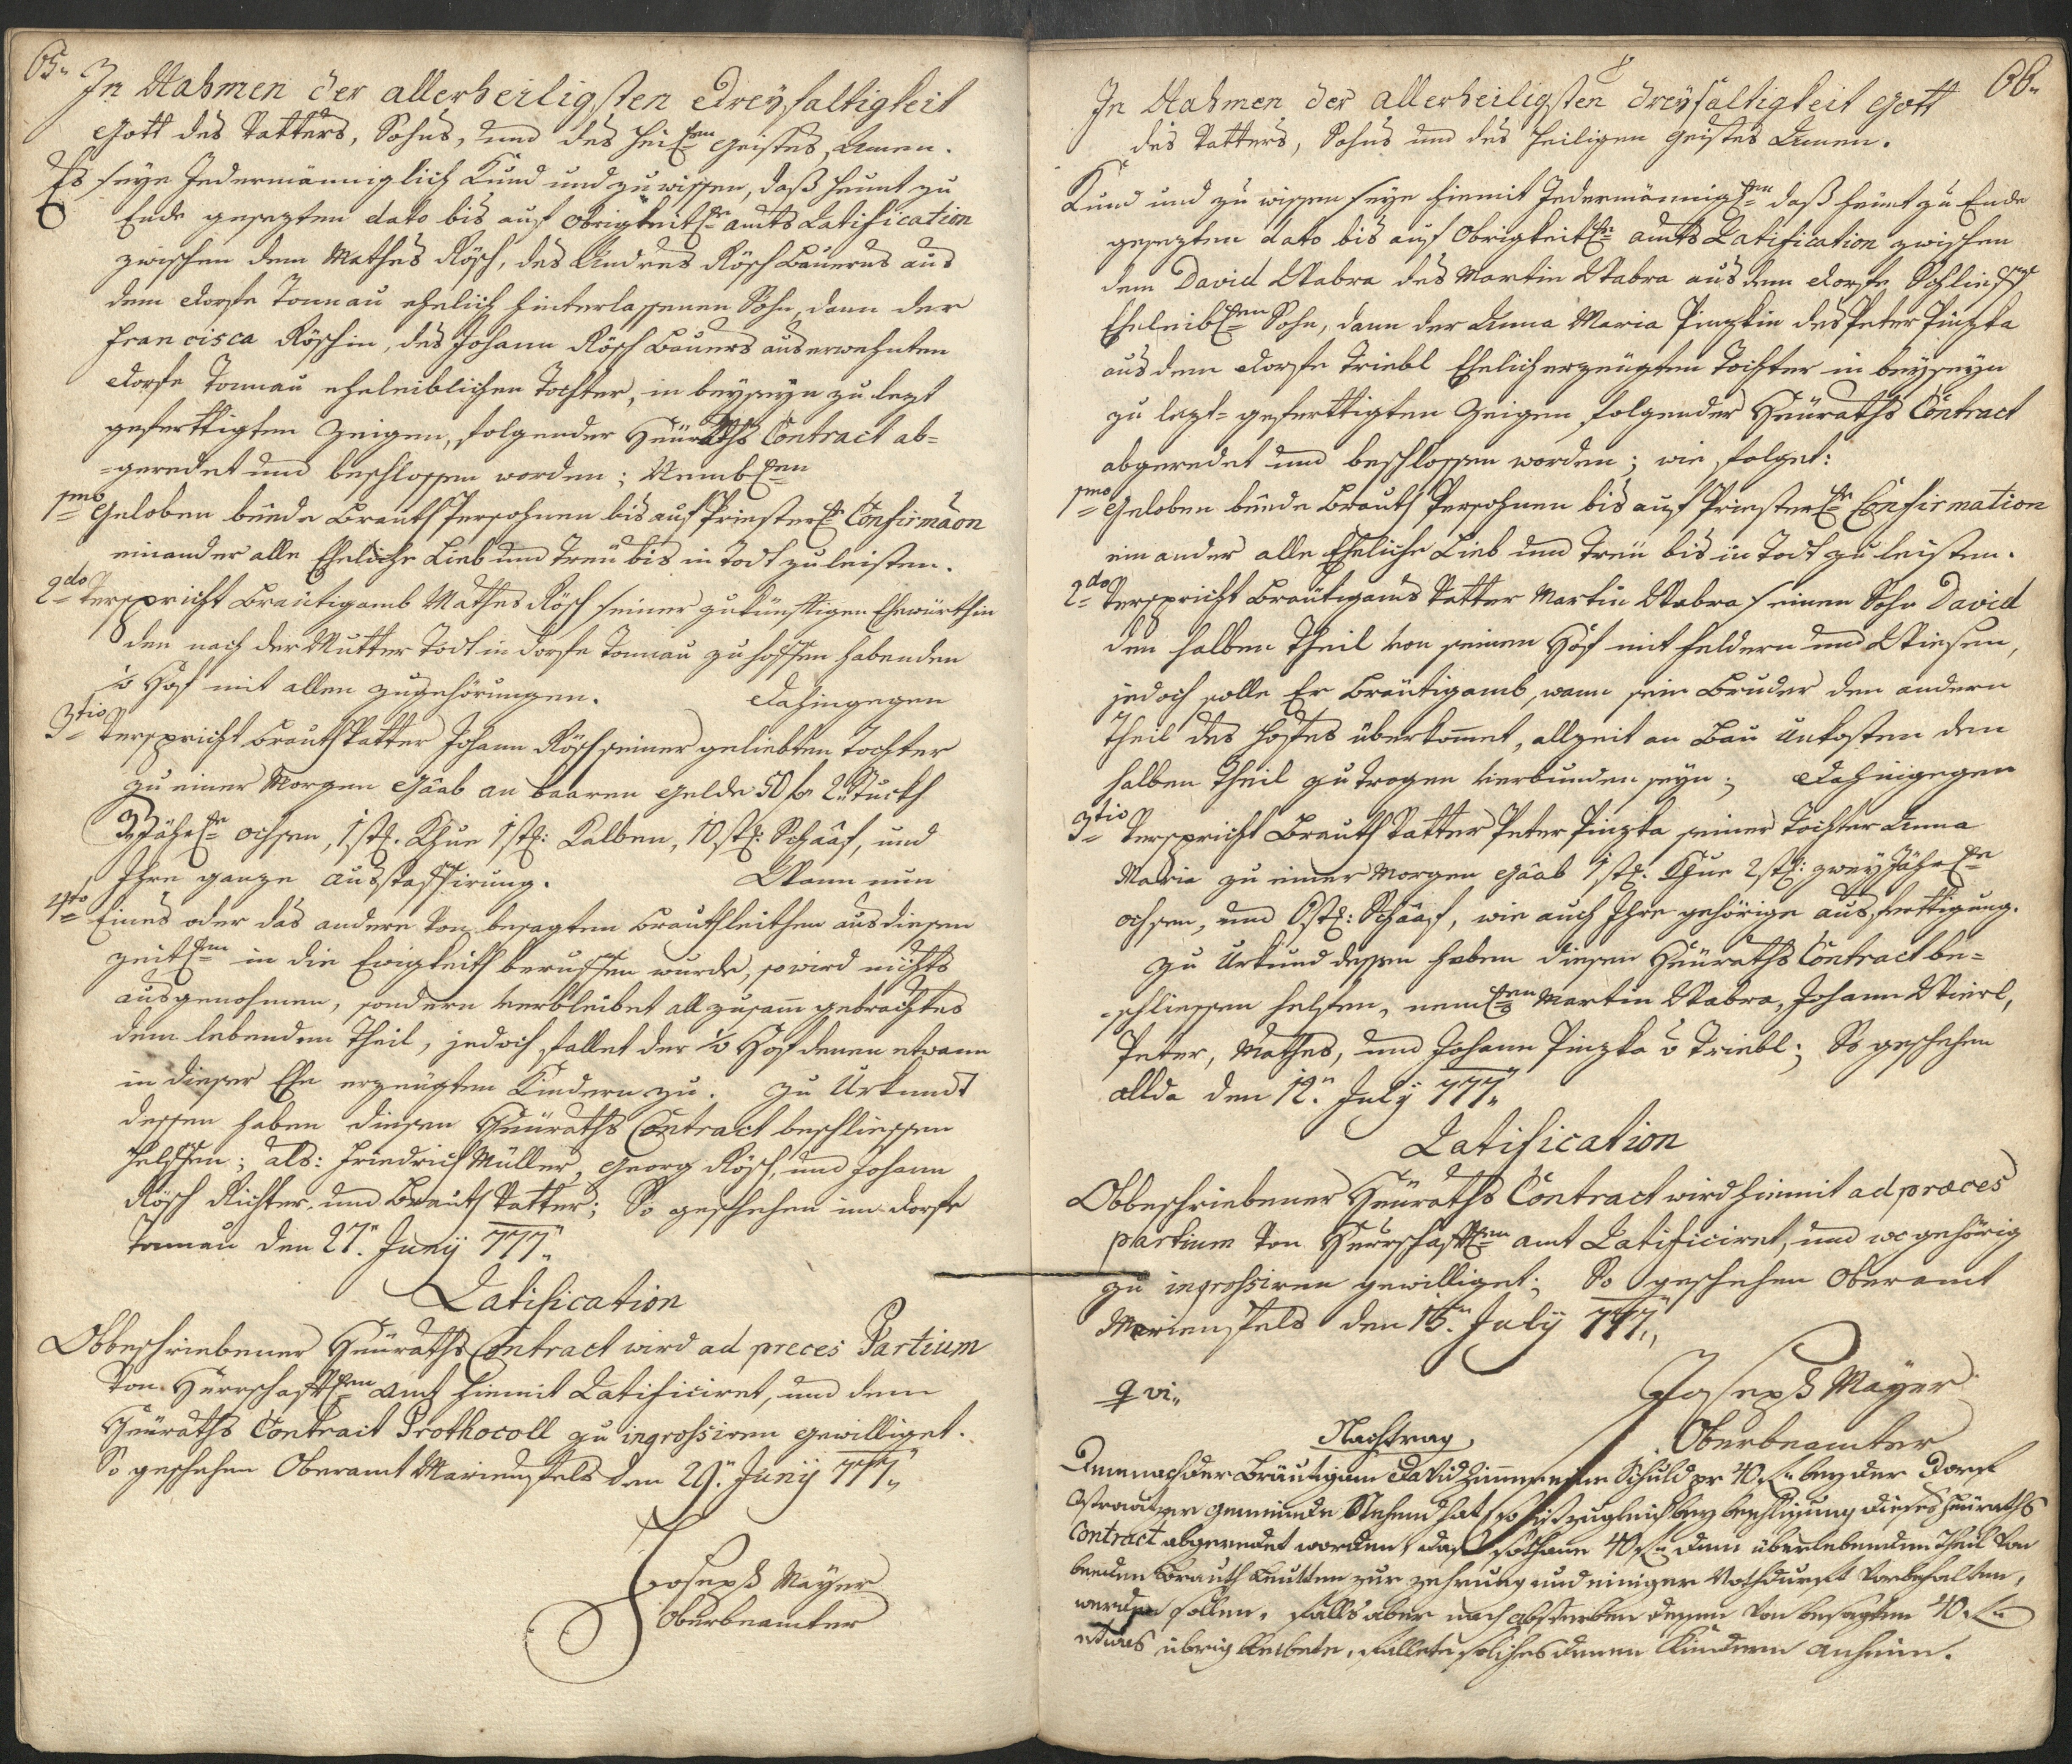 65.
In Nahmen der allerheiligsten Dreyfaltigkeit
Gott des Vatters, Sohns, und des heil: Geistes, Amen.
Es seye Jedermänniglich Kund und zu wissen, daß heunt zu
Ende gesezten dato bis auf obrigkeitl: amts Ratification
zwischen dem Mathes Rösch, des Andres Rösch Bauerns aus
dem Dorfe Tonnau ehelich hinterlassenen Sohn, dann der
Francisca Röschin, des Johann Rösch Bauers aus erwehnten
Dorfe Tonnau eheleiblichen Tochter, in beyseyn zu lezt
geferttigten Zeigen, folgender Heüraths Contract ab-
-geredet und beschlossen worden; Nembl:
1mo Geloben beede Brauth Persohnen bis auf Priesterl: Confirmaon
einander alle Eheliche Lieb und Treü bis in Todt zu leisten.
2do Verspricht Bräutigamb Mathes Rösch seiner zukünfftigen Ehewürthin
den nach der Mutter Todt in Dorfe Tonnau zu hoffen habenden
Hof mit allen zugehörungen. Dahingegen
3tio Verspricht Brauth Vatter Johann Rösch seiner geliebten Tochter
zu einer Morgen Gaab an baaren Gelde 50 f 2 Stuckh
3 Jähr: Ochsen, 1 st: Khue 1 st: Kalben, 10 st: Schaaf, und
Ihre ganze ausstaffirung. Wann nun
4to Eines oder das andere von besagten Brauthleithen aus diesen
zeitl: in die Ewigkeith beruffen wurde, so wird nichts
ausgenohmen, sondern verbleibet all zusam gebrachtes
dem lebenden Theil, jedoch fallet der Hof denen etwann
in dieser Ehe erzeugten Kindern zu. Zu Urkundt
dessen haben diesen Heüraths Contract beschliessen
helffen; als: Friedrich Müller, Georg Rösch, und Johann
Rösch Richter, und Brauth Vatter; So geschehen im Dorfe
Tonnau den 27. Junÿ 777.
Ratification
Obbeschriebener Heüraths Contract wird ad preces Partium
von Herrschaftl: Amt hiemit Ratificiret, und dem
Heüraths Contract Prothocoll zu ingrossiren gewilliget.
So geschehen Oberamt Marienfels den 29. Junÿ 777.
Joseph Mayer
Oberbeamter
66.
In Nahmen der allerheiligsten dreyfaltigkeit Gott
des Vatters, Sohns und des heiligen Geistes Amen.
Kund und zu wissen seye hiemit Jedermännigl: daß heünt zu Ende
gesezten dato bis auf Obrigkeitl: amts Ratification zwischen
dem David Wabra des Martin Wabra aus dem Dorfe
Eheleibl: Sohn, dann der Anna Maria Pinzkin des Peter Pinzka
aus dem Dorfe Triebl Ehelich erzeügten Tochter in beyseyn
zu lezt-geferttigten Zeigen folgender Heüraths Contract
abgeredet und beschlossen worden; wie folget:
1mo Geloben beede Brauth Persohnen bis auf Priesterl: Confirmation
einander alle Eheliche Lieb und Treü bis in Todt zu leisten.
2do Verspricht Bräutigams Vatter Martin Wabra seinem Sohn David
den halben Theil von seinen Hof mit Feldern und Wiesen,
jedoch solle Er Bräutigamb, wann sein Bruder den andern
Theil des Hofes überkommet, allzeit an Bau Unkosten den
halben Theil zu tragen verbunden seyn; Dahingegen
3tio Verspricht Brauth Vatter Peter Pinzka seiner Tochter Anna
Maria zu einer Morgen Gaab 1 st: Khue 2 st: zwey Jähr:
Ochsen, und 6 st: Schaaf, wie auch Ihre gehörige ausferttigung.
Zu Urkund dessen haben diesen Heüraths Contract be-
-schliessen helfen, neml: Martin Wabra, Johann
Peter, Mathes, und Johann Pinzka v Triebl; So geschehen
allda den 12. Julÿ 777.
Ratification
Obbeschriebener Heüraths Contract wird hiemit ad præces
partium von Herrschaftl: amt Ratificiret, und wo gehörig
zu ingrossiren gewilliget; So geschehen Oberamt
Marienfels den 15. Julÿ 777.
q vi.
Joseph Mayer
Oberbeamter
Nachtrag,
Demnach der Bräutigam David eine Schuld pr 40 f bey der Dorf
gemeinde Stehend hat, so ist zugleich bey beschlissung dieses Heüraths
Contract abgeredet worden, daß sothane 40 f dem überlebenden Theil von
beeden Brauth Leutten zur zehrung und einiger Nothdurft vorbehalten,
werden sollen, Falls aber nach absterben dessen von besagten 40 f
etwas übrig bleibete, fallete solches denen Kindern anheim.